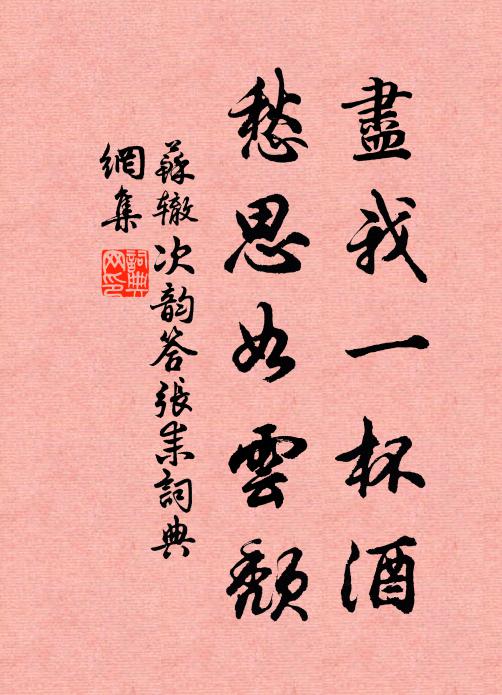 盡我一杯酒
愁思如雲頹
蘇辙次韵答張耒詞典
網集
詞典
网印